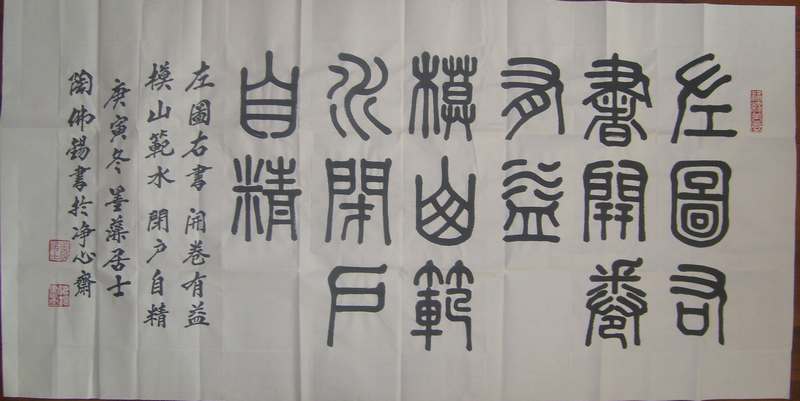 左圖右
書開卷
有益
模山範
水閉戶
自精
左圖右書 開卷有益
模山範水 閉户自精
庚寅冬墨藻居士
陶佛錫書於净心齋